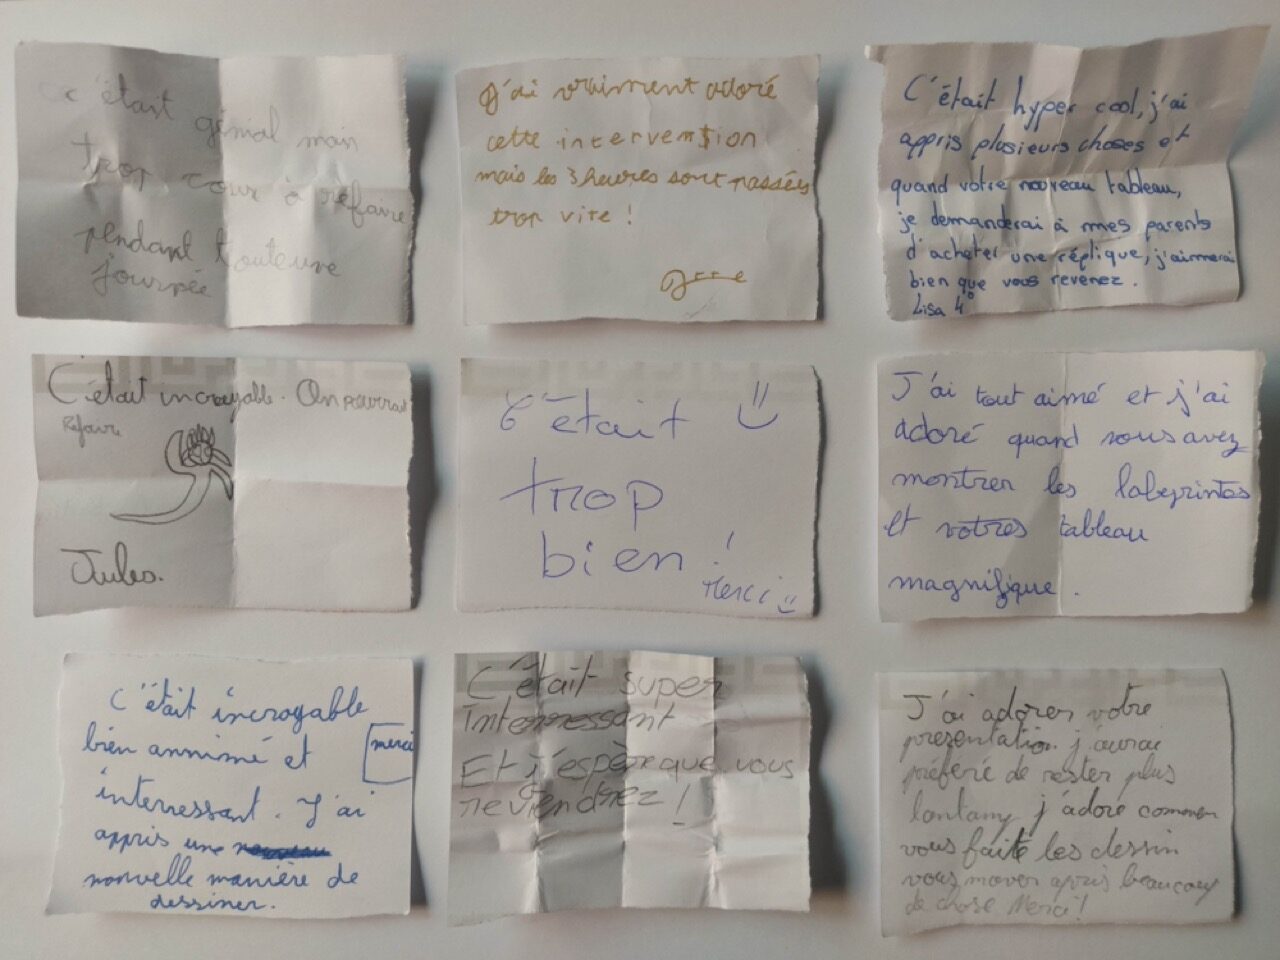 c'était
génial mais
trop cour à refaire
pendant toute une
journée
J'ai vraiment adoré
cette intervention
mais les 3 heures sont passées
trop vite !
C'était hyper cool, j'ai
appris plusieurs choses et
quand votre nouveau tableau,
je demanderai à mes parents
d'acheter une réplique, j'aimerai
bien que vous revenez.
Lisa 4°
C'était incroyable. On pourrait
Refaire
Jules.
C'était
trop
bien !
Merci
J'ai tout aimé et j'ai
adoré quand vous avez
montrer les labyrintes
et votres tableau
magnifique.
C'était incroyable
bien annimé et
merci
interressant. J'ai
appris une nouveau
nouvelle manière de
dessiner.
C'était super
interressant
Et j'espère que vous
reviendrez !
J'ai adorer votre
présentation j'aurai
préféré de rester plus
lontamp j'adoré commen
vous faite les dessin
vous maver apris beaucoup
de chose Merci !